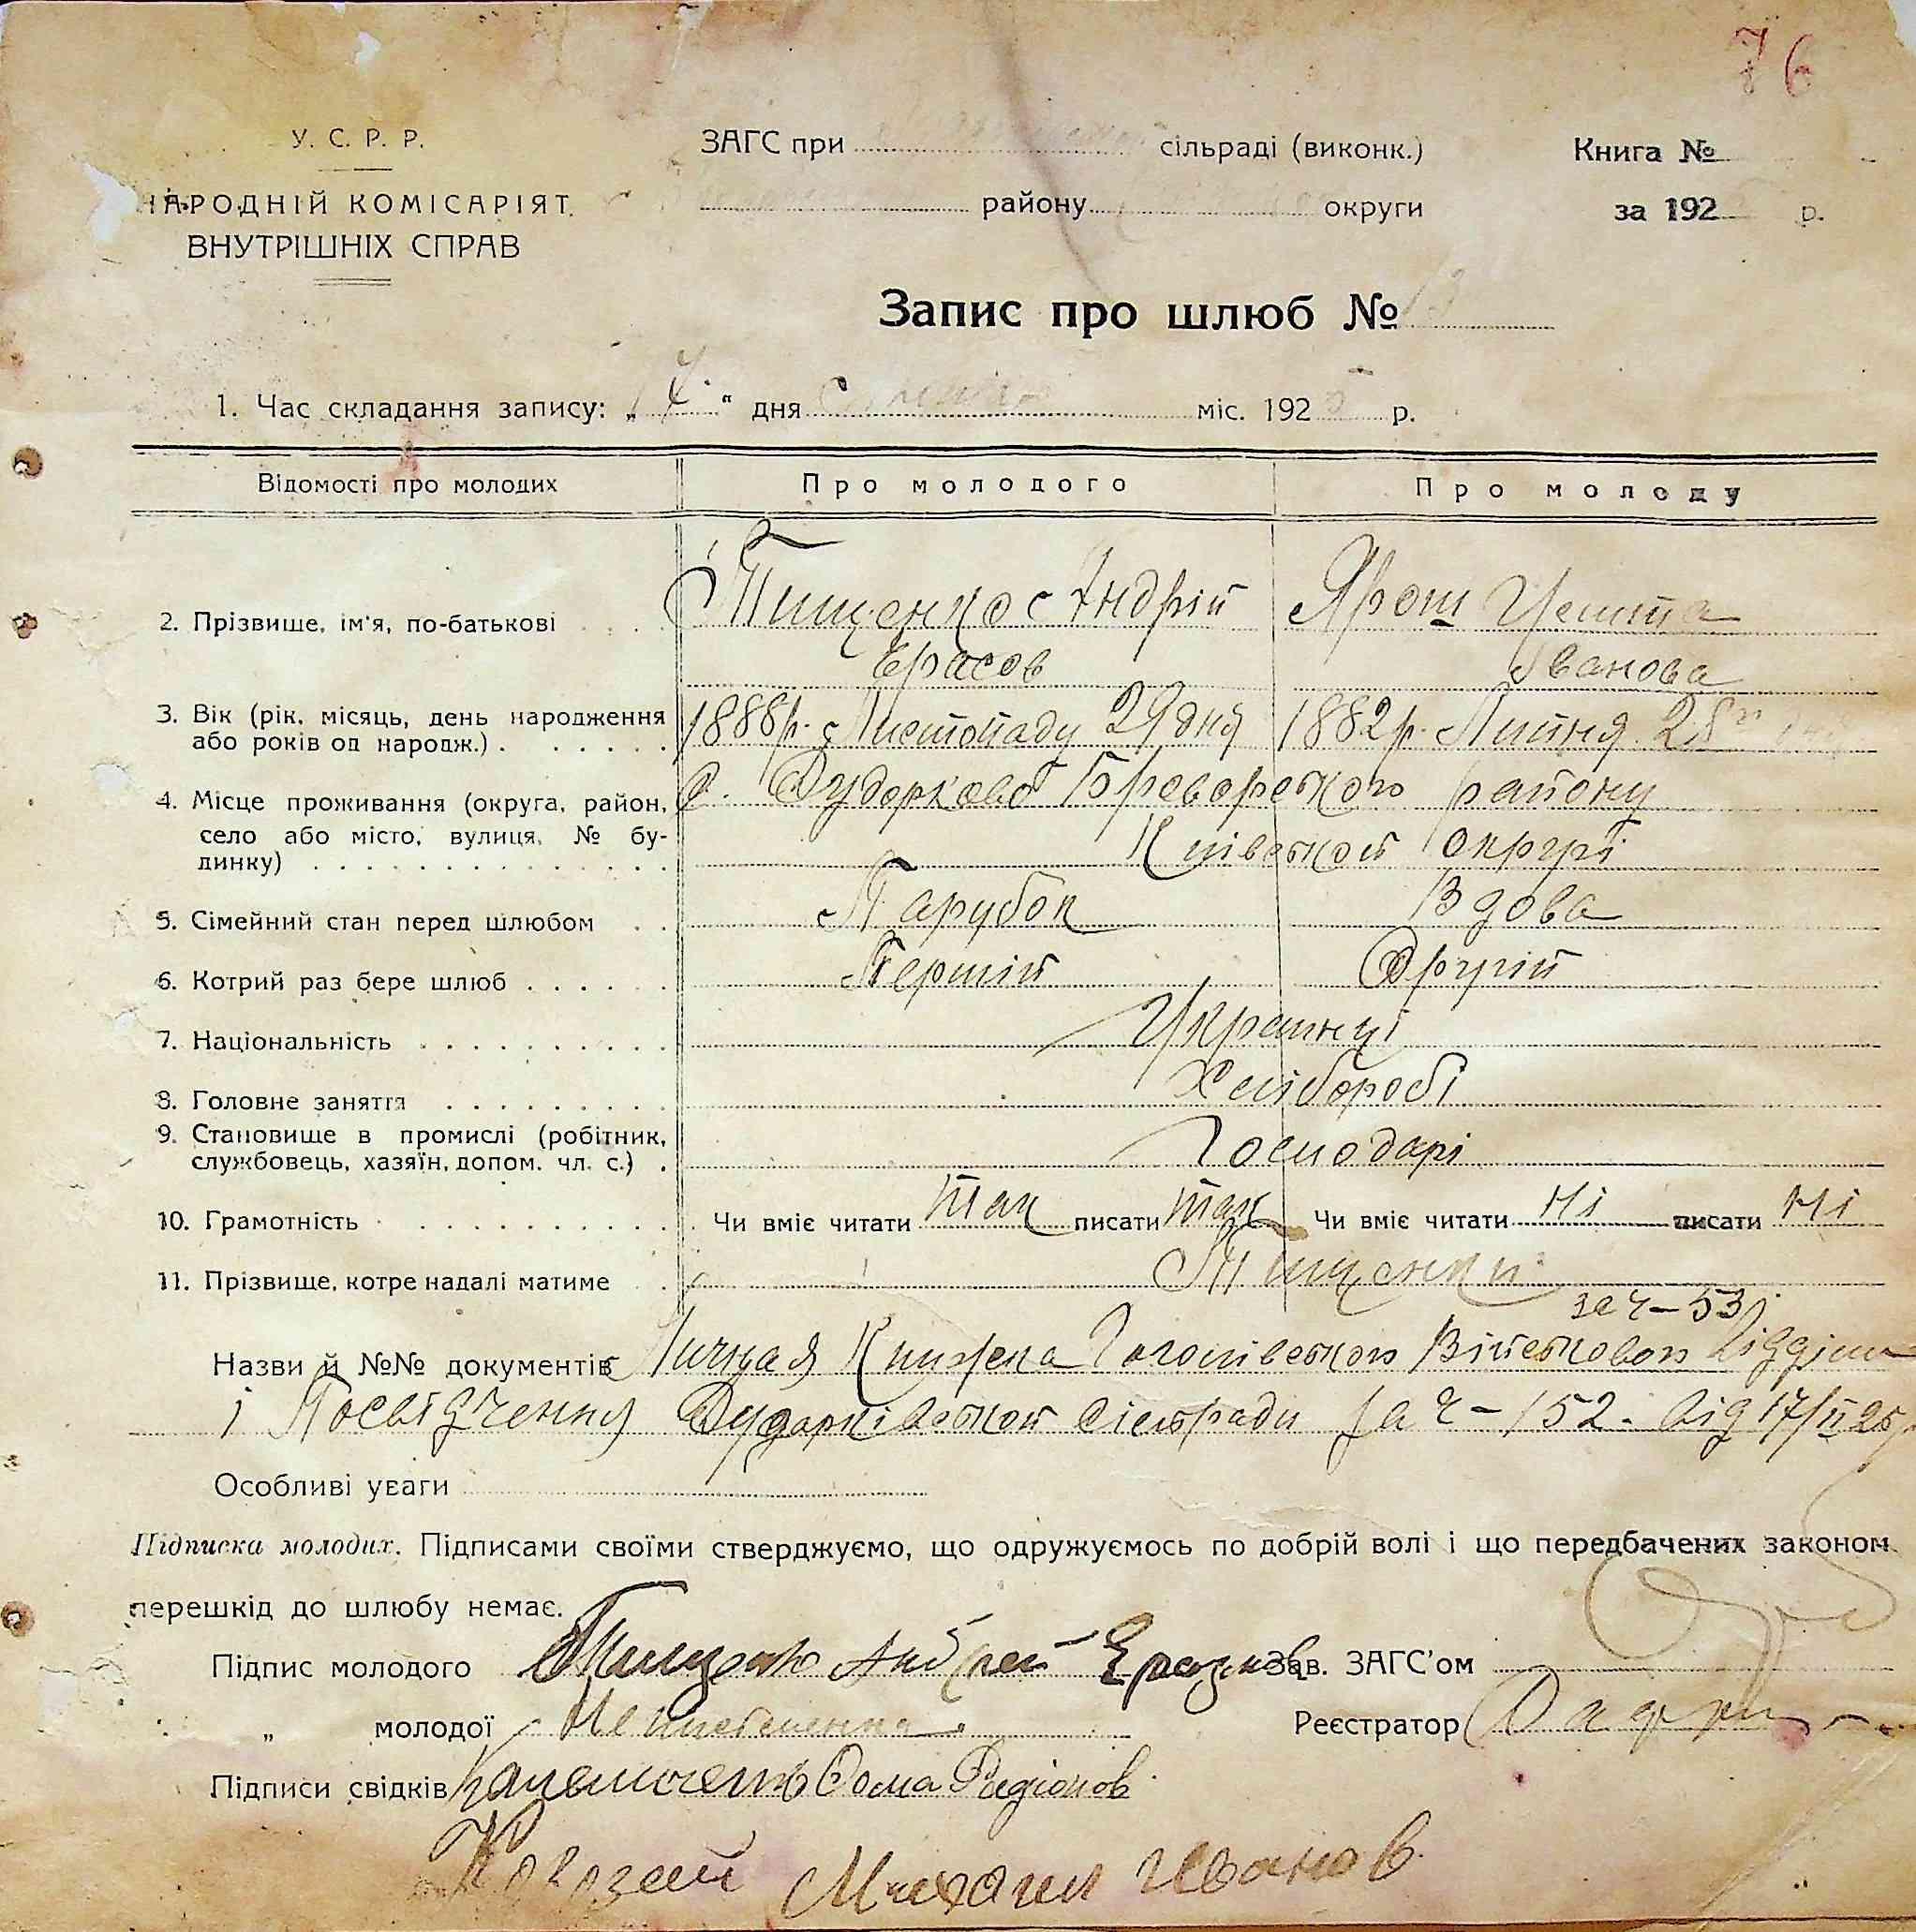 76
У. С. Р. Р.
НАРОДНІЙ КОМІСАРІЯТ
ВНУТРІШНІХ СПРАВ
ЗАГС при сільраді (виконк.)
району округи
Книга №
за 192 р.
Запис про шлюб № 13
1. Час складання запису: „ “ дня міс. 1925 р.
Відомості про молодих Про молодого Про молоду
2. Прізвище, ім'я, по-батькові Тищенко Андрій Ярош Устина
Єрасов Іванова
3. Вік (рік, місяць, день народження або років од народж.) 1888р. Листопаду 29 дня 1882р. Липня 28
4. Місце проживання (округа, район, село або місто, вулиця, № будинку) с. Дударково Броварського району
Київської округи
5. Сімейний стан перед шлюбом Парубок Вдова
6. Котрий раз бере шлюб Першій Другій
7. Національність Українці
8. Головне заняття Хліборобі
9. Становище в промислі (робітник, службовець, хазяїн, допом. чл. с.) Господарі
10. Грамотність Чи вміє читати так писати так Чи вміє читати Ні писати Ні
11. Прізвище, котре надалі матиме Тищенки
за ч – 53
Назви й №№ документів Личная Книжка Гоголівського Військового
і Посвідчення Дударківської сільради за ч – 152. від 17/II 25р
Особливі уваги
Підписка молодих. Підписами своїми стверджуємо, що одружуємось по добрій волі і що передбачених законом
перешкід до шлюбу немає.
Підпис молодого Тищенко Андрей Еразмов Зав. ЗАГС'ом
„ молодої Неписьменна Реєстратор
Підписи свідків Фома Радіонов
Михаил Иванов